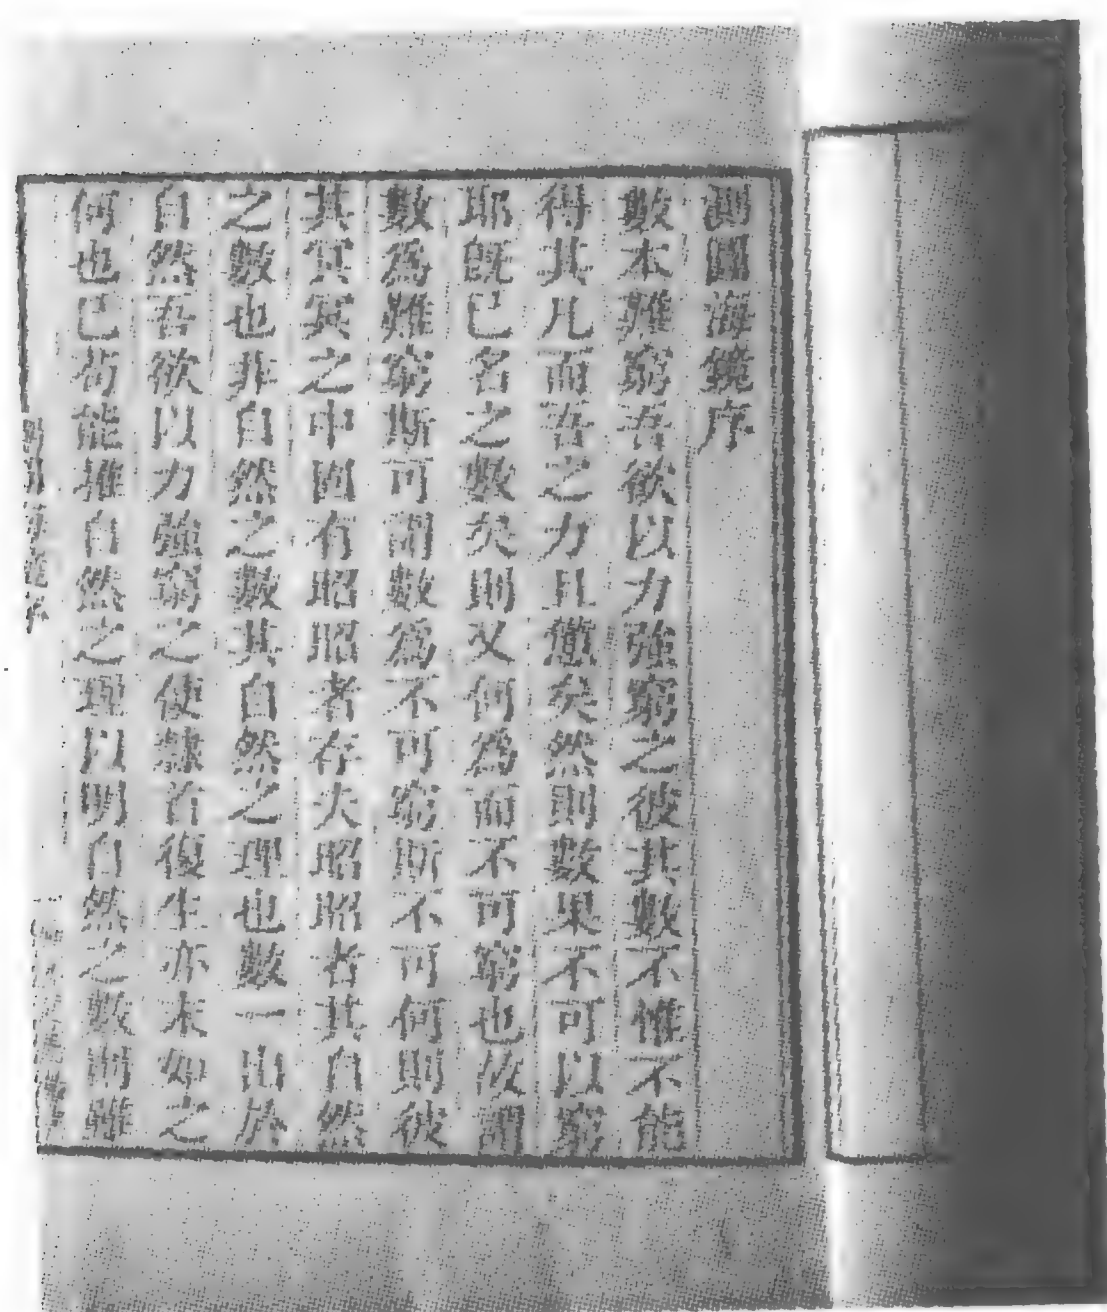 測圓海鏡序
數本難窮吾欲以力強窮之彼其數不惟不能
得其凡而吾之力且憊矣然則數果不可以窮
耶既已名之數矣則又何為而不可窮也故謂
數為難窮斯可謂數為不可窮斯不可何則彼
其冥冥之中固有昭昭者存夫昭昭者其自然
之數也非自然之數其自然之理也數一出於
自然吾欲以力強窮之使隸首復生亦未如之
何也已苟能推自然之理以明自然之數則雖